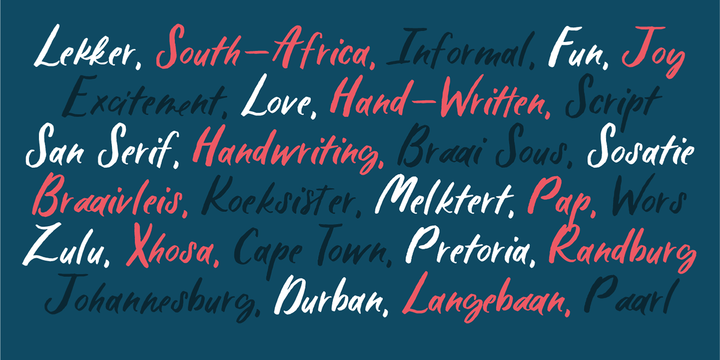 Lekker, South-Africa, Informal, Fun, Joy
Excitement, Love, Hand-Written, Script
San Serif, Handwriting, Braai Sous, Sosatie
Braaivleis, Koeksister, Melktert, Pap, Wors
Zulu, Xhosa, Cape Town, Pretoria, Randburg
Johannesburg, Durban, Langebaan, Paarl